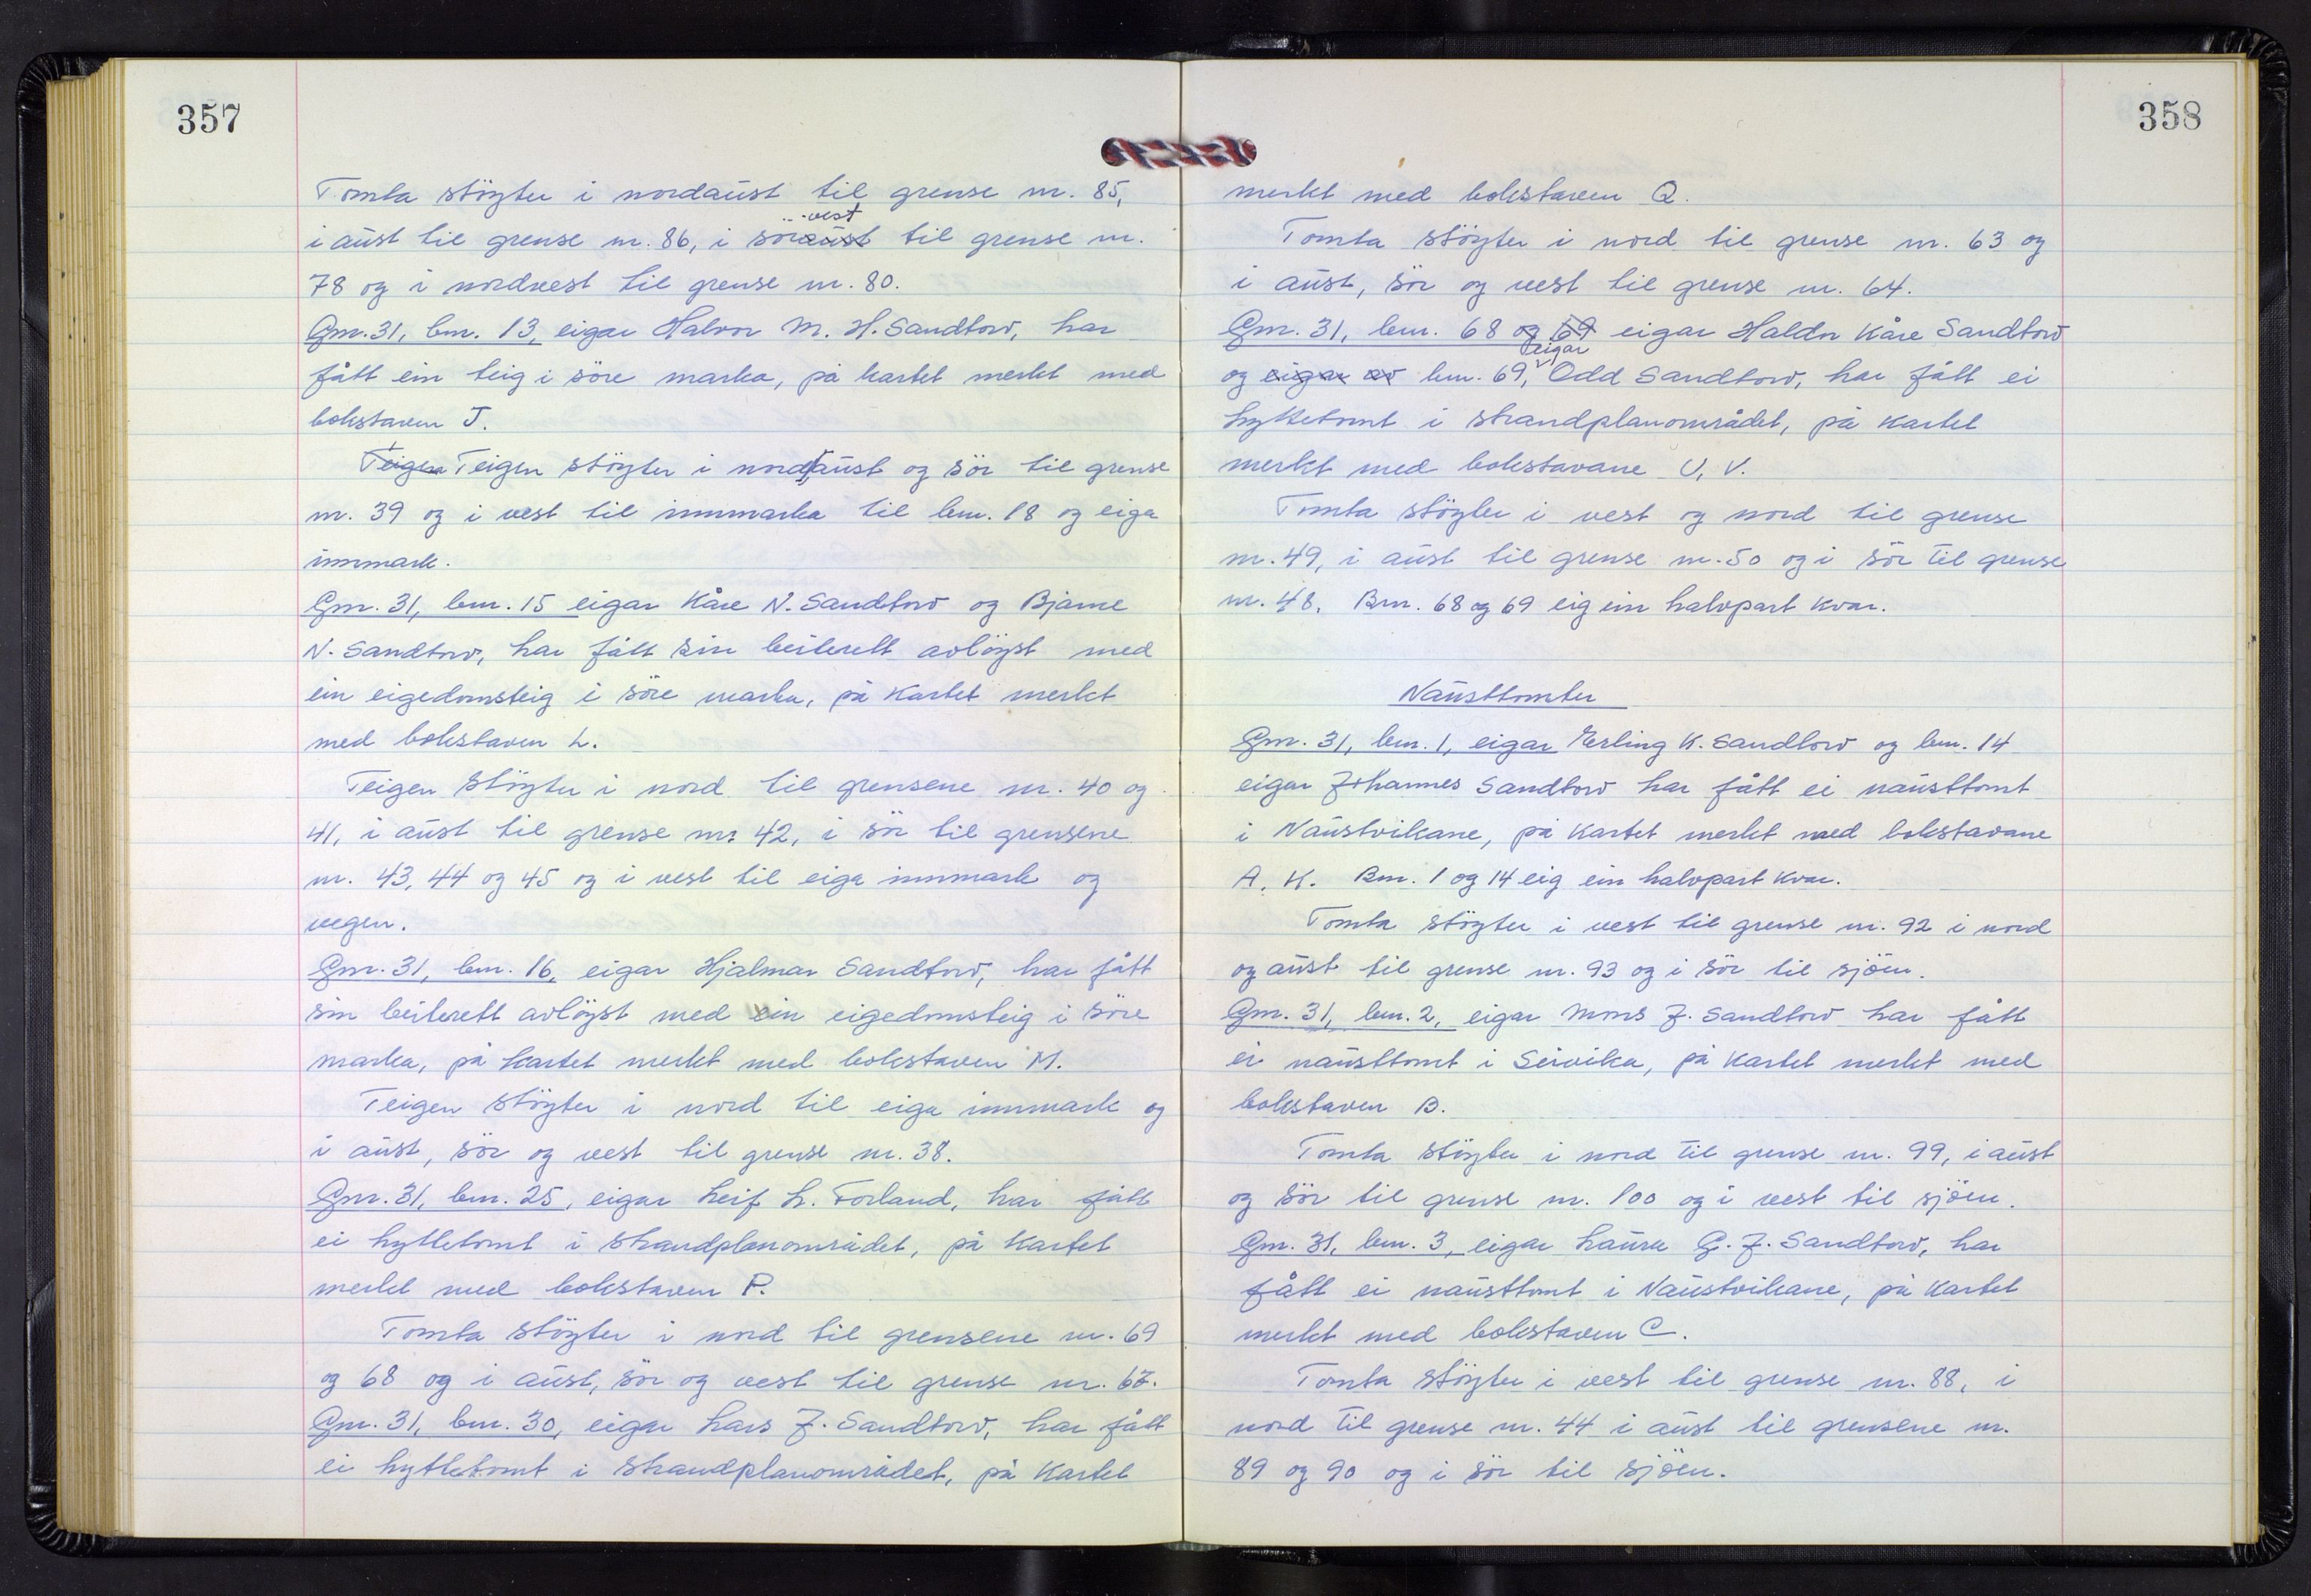 357
Tomta støyter i nordaust til grense nr. 85,
vest
i aust til grense nr. 86, i søraust til grense nr.
78 og i nordvest til grense nr. 80.
Gnr. 31, bnr. 13, eigar Halvor M. H. Sandtorv, har
fått ein teig i søre marka, på kartet merkt med
bokstaven J.
Teigen Teigen støyter i nord, aust og sør til grense
nr. 39 og i vest til innmarka til bnr. 18 og eiga
innmark.
Gnr. 31, bnr. 15 eigar Kåre N. Sandtorv og Bjarne
N. Sandtorv, har fått sin beiterett avløyst med
ein eigedomsteig i søre marka, på kartet merkt
med bokstaven L.
Teigen støyter i nord til grensene nr. 40 og
41, i aust til grense nr. 42, i sør til grensene
nr. 43, 44 og 45 og i vest til eiga innmark og
vegen.
Gnr. 31, bnr. 16, eigar Hjalmar Sandtorv, har fått
sin beiterett avløyst med ein eigedomsteig i søre
marka, på kartet merkt med bokstaven M.
Teigen støyter i nord til eiga innmark og
i aust, sør og vest til grense nr. 38.
Gnr. 31, bnr. 25, eigar Leif L. Forland, har fått
ei hyttetomt i strandplanområdet, på kartet
merkt med bokstaven P.
Tomta støyter i nord til grensene nr. 69
og 68 og i aust, sør og vest til grense nr. 67.
Gnr. 31, bnr. 30, eigar Lars J. Sandtorv, har fått
ei hyttetomt i strandplanområdet, på kartet
358
merkt med bokstaven Q.
Tomta støyter i nord til grense nr. 63 og
i aust, sør og vest til grense nr. 64.
Gnr. 31, bnr. 68 og 69 eigar Haldor Kåre Sandtorv
eigar
og eigar av bnr. 69, Odd Sandtorv, har fått ei
hyttetomt i strandplanområdet, på kartet
merkt med bokstavane U, V.
Tomta støyter i vest og nord til grense
nr. 49, i aust til grense nr. 50 og i sør til grense
nr. 48. Bnr. 68 og 69 eig ein halvpart kvar.
Nausttomter
Gnr. 31, bnr. 1, eigar Erling K. Sandtorv og bnr. 14
eigar Johannes Sandtorv har fått ei nausttomt
i Naustvikane, på kartet merkt med bokstavane
A, K. Bnr. 1 og 14 eig ein halvpart kvar.
Tomta støyter i vest til grense nr. 92 i nord
og aust til grense nr. 93 og i sør til sjøen.
Gnr. 31, bnr. 2, eigar Mons J. Sandtorv har fått
ei nausttomt i Seivika, på kartet merkt med
bokstaven B.
Tomta støyter i nord til grense nr. 99, i aust
og sør til grense nr. 100 og i vest til sjøen.
Gnr. 31, bnr. 3, eigar Laura G. J. Sandtorv, har
fått ei nausttomt i Naustvikane, på kartet
merkt med bokstaven C.
Tomta støyter i vest til grense nr. 88, i
nord til grense nr. 44 i aust til grensene nr.
89 og 90 og i sør til sjøen.